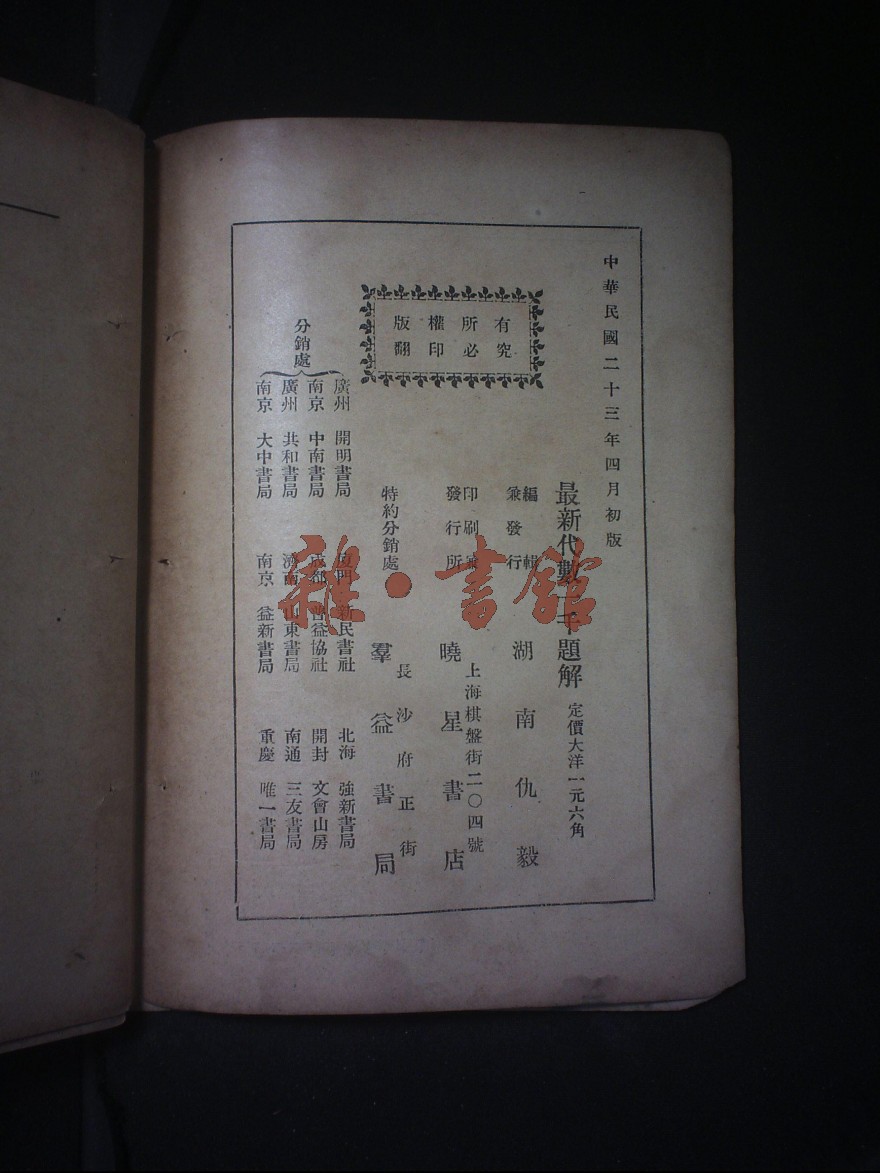 中華民國二十三年四月初版
最新代數二千題解 定價大洋一元六角
編輯
兼發行 湖南仇毅
印刷兼
發行所 上海棋盤街二〇四號
曉星書店
特約分銷處 長沙府正街
羣益書局
有究
所必
權印
版翻
分銷處
廣州 開明書局 廈門 新民書社 北海 強新書局
南京 中南書局 成都 普益協社 開封 文會山房
廣州 共和書局 濟南 山東書局 南通 三友書局
南京 大中書局 南京 益新書局 重慶 唯一書局
雜·書館